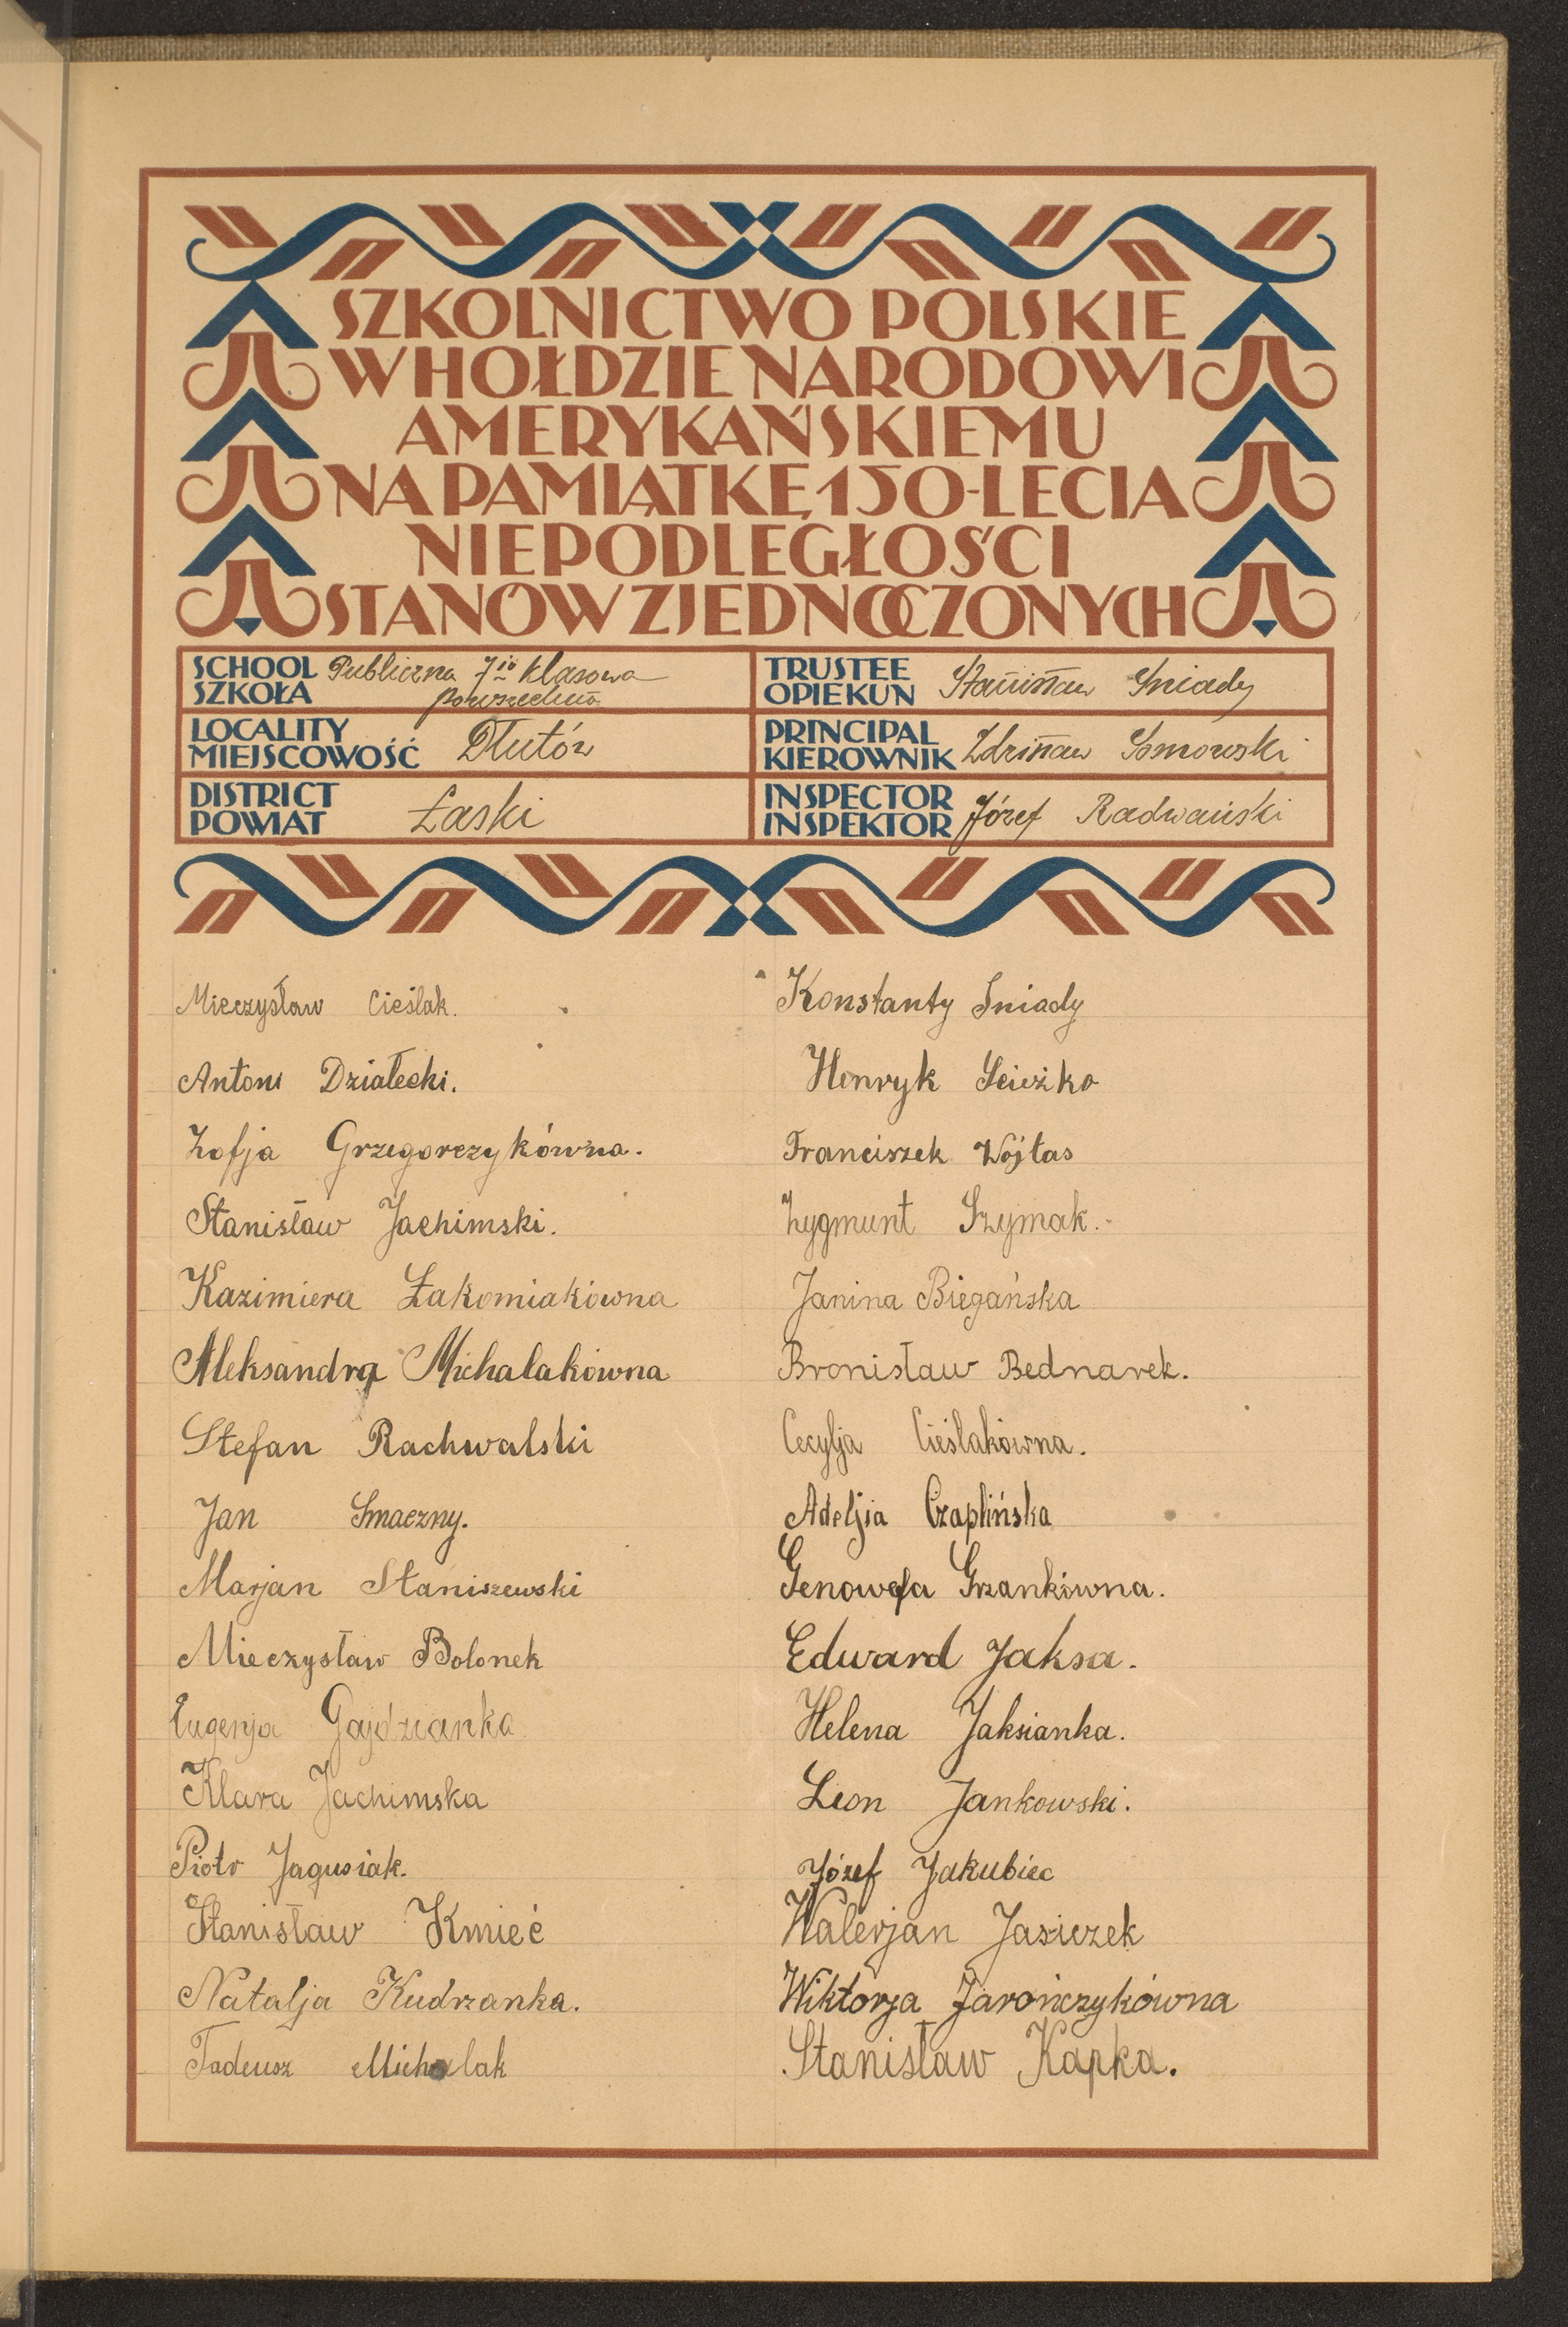 SZKOLNICTWO POLSKIE
W HOŁDZIE NARODOWI
AMERYKAŃSKIEMU
NA PAMIĄTKĘ 150-LECIA
NIEPODLEGŁOŚCI
STANÓW ZJEDNOCZONYCH
SCHOOL
SZKOŁA
Publiczna 7io klasowa
powszechna
TRUSTEE
OPIEKUN
Stanisław Śniady
LOCALITY
MIEJSCOWOŚĆ
Dłutów
PRINCIPAL
KIEROWNIK
Zdzisław Somowski
DISTRICT
POWIAT
Łaski
INSPECTOR
INSPEKTOR
Józef Radwański
Mieczysław Cieślak.
Antoni Działecki.
Zofja Grzegorczykówna.
Stanisław Jachimski.
Kazimiera Łakomiakówna
Aleksandra Michalakówna
Stefan Rachwalski
Jan Smaczny.
Marjan Staniszewski
Mieczysław Bolonek
Eugenja Gajdzianka
Klara Jachimska
Piotr Jagusiak.
Stanisław Kmieć
Natalja Kudrzanka.
Tadeusz Michalak
Konstanty Śniady
Henryk Ścieżko
Franciszek Wojtas
Zygmunt Szymak.
Janina Biegańska
Bronisław Bednarek.
Cecylja Cieślakówna.
Adelja Czaplińska
Genowefa Grzankówna.
Edward Jaksa.
Helena Jaksianka.
Leon Jankowski.
Józef Jakubiec
Walerjan Jasiczek
Wiktorja Jarończykówna
Stanisław Kapka.